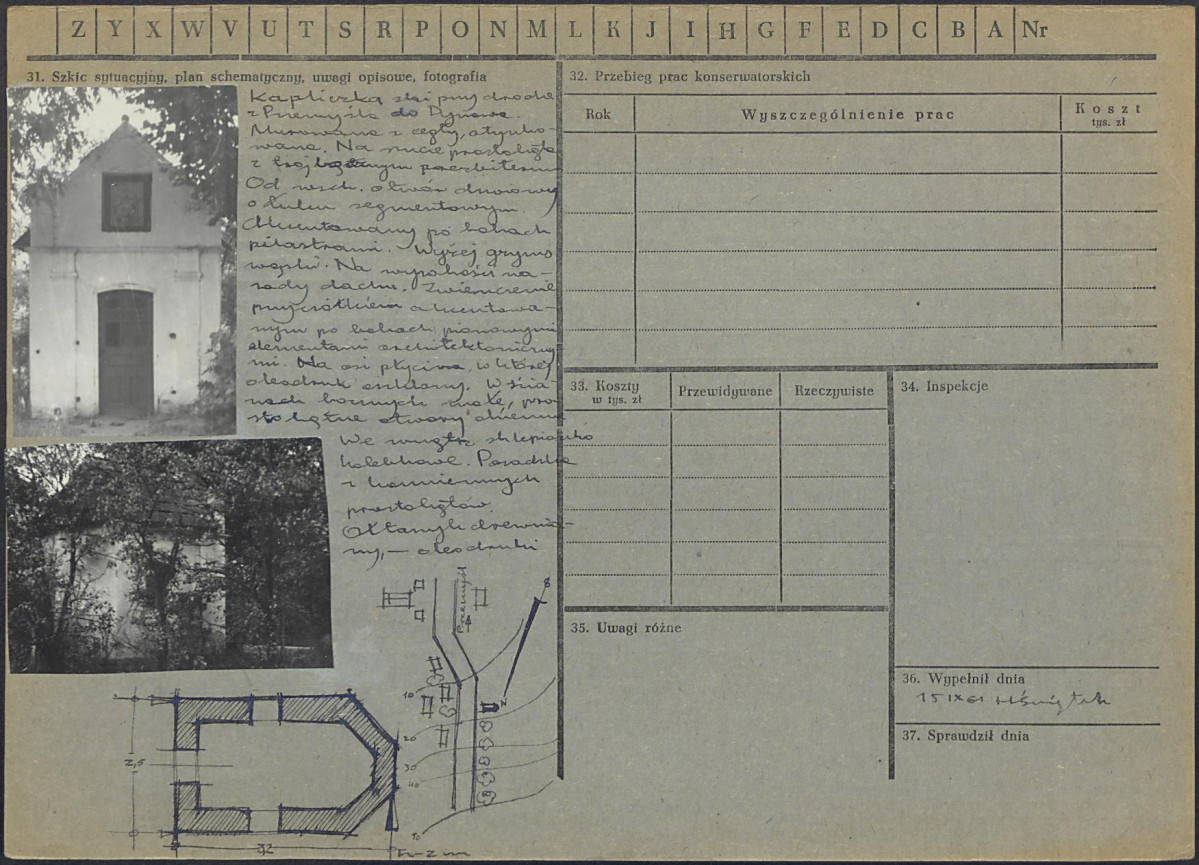 Z Y X W V U T S R P O N M L K J I H G F E D C B A Nr
31. Szkic sytuacyjny, plan schematyczny, uwagi opisowe, fotografia
Kapliczka stoi przy drodze
z Przemyśla do Dynowa.
Murowana z cegły, otynko-
wana. Na rzucie prostokąta
z trójbocznym prezbiterium
Od wsch. otwór drzwiowy
o łuku segmentowym.
Akcentowany po bokach
pilastrami. Wyżej gzyms
wąski. Na wysokości na-
sady dachu. Zwieńczenie
przyczółkiem akcentowa-
nym po bokach pionowymi
elementami architektoniczny
mi. Na osi płycina, w której
oleodruk oszklony. W ścia-
nach bocznych małe, pro-
stokątne otwory okienne
We wnętrz sklepienie
kolebkowe. Posadzka
z kamiennych
prostokątów.
Ołtarzyk drewnia-
ny, — oleodruki
Przemyśl
10
20
30
40
50
2,5
3,2
32. Przebieg prac konserwatorskich
Rok
Wyszczególnienie prac
Koszt
tys. zł
33. Koszty
w tys. zł
Przewidywane
Rzeczywiste
34. Inspekcje
35. Uwagi różne
36. Wypełnił dnia
15 IX 61
37. Sprawdził dnia